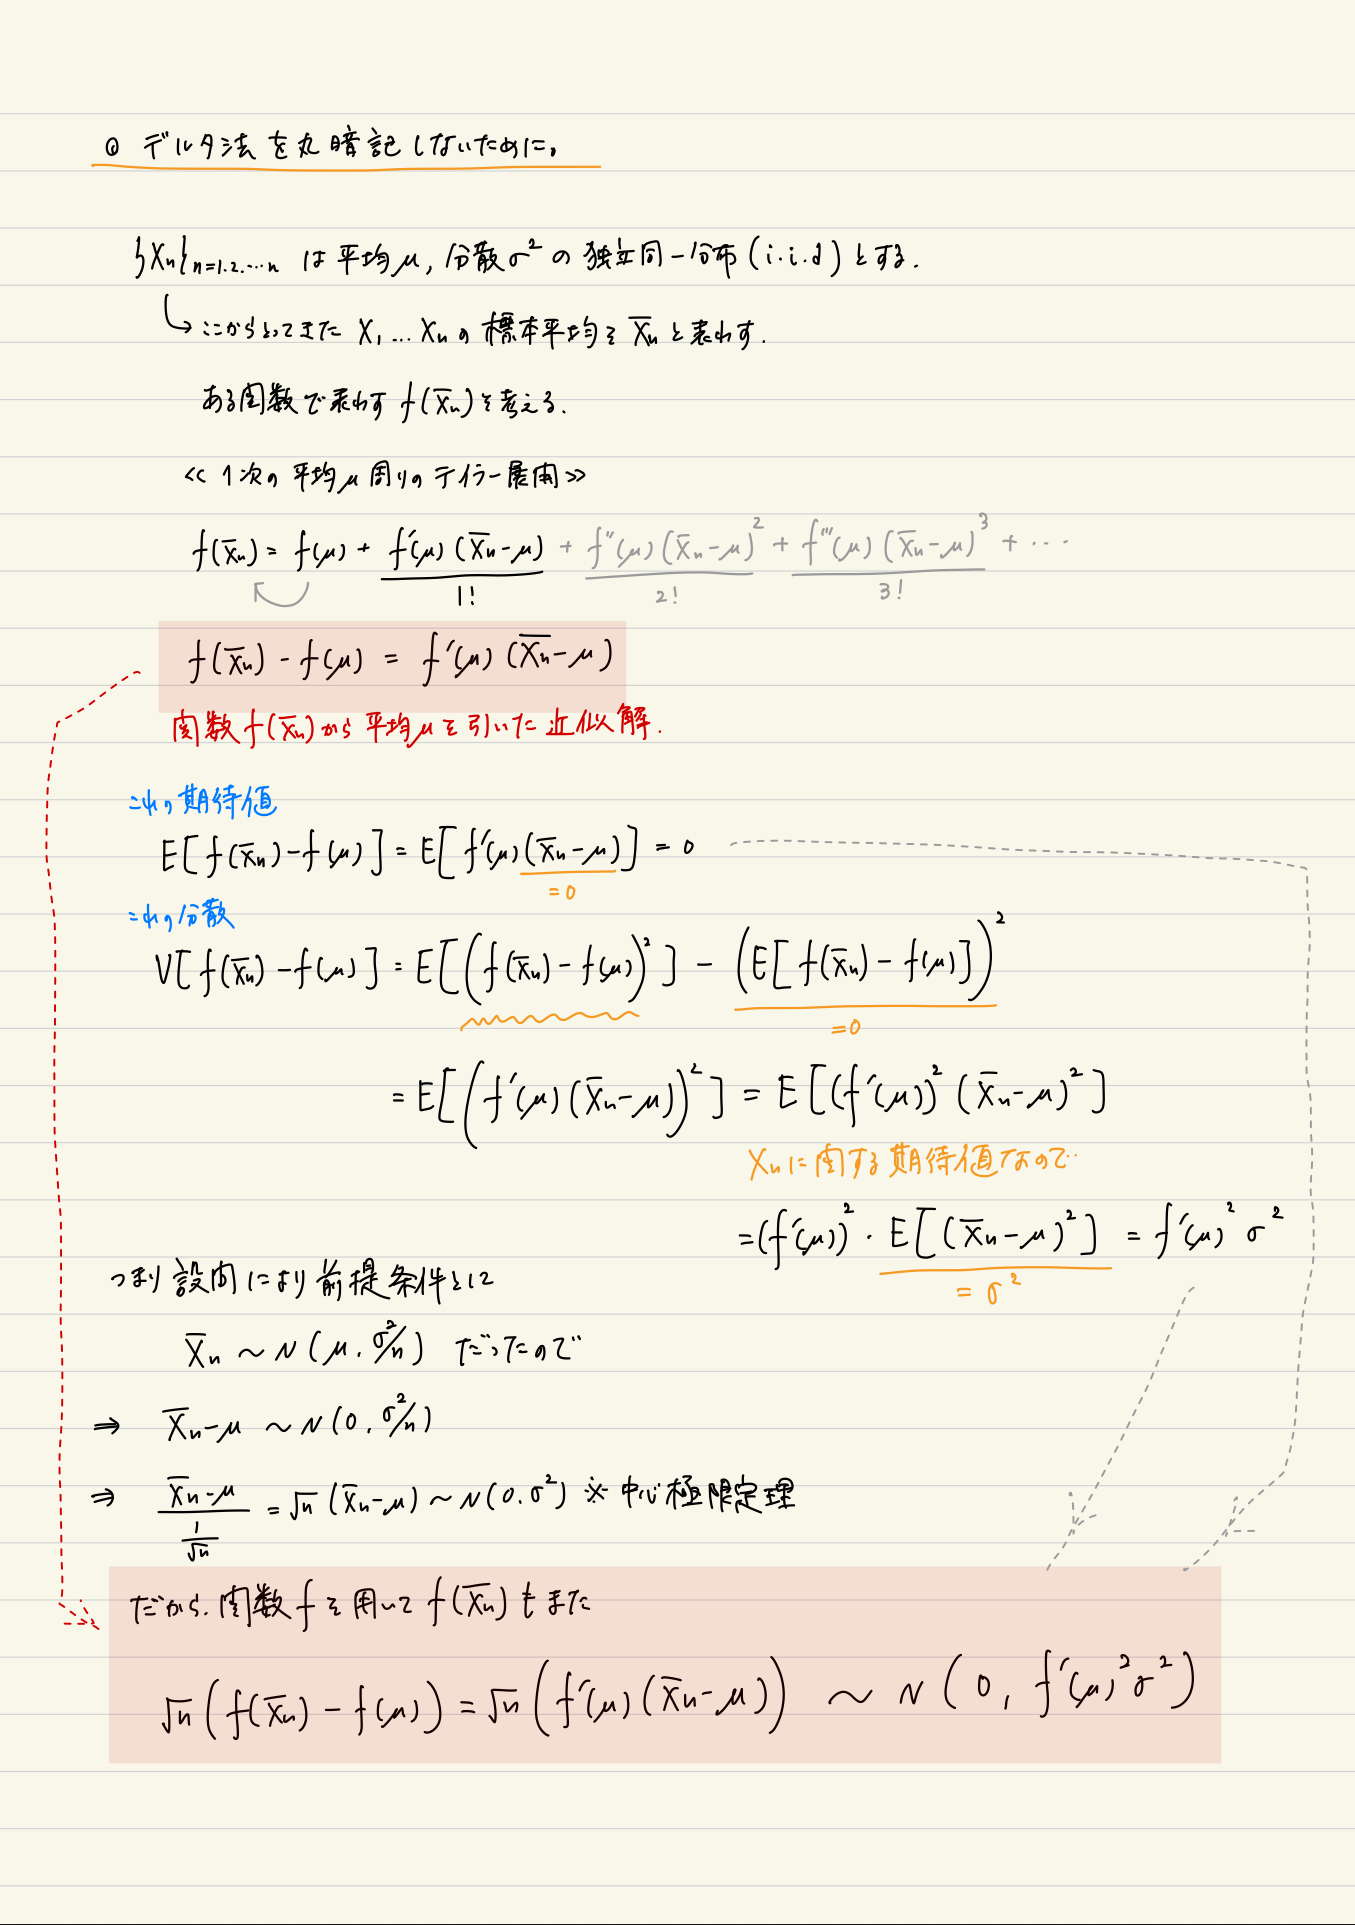 ◎ デルタ法を丸暗記しないために。
{Xn}n=1.2.…n は平均μ, 分散σ²の独立同一分布(i.i.d)とする.
↳ ここからとってきた X₁…Xnの標本平均をX̄nと表わす.
ある関数で表わすf(X̄n)を考える.
≪1次の平均μ周りのテイラー展開≫
f(X̄n) = f(μ) + f'(μ)(X̄n-μ)/1! + f''(μ)(X̄n-μ)²/2! + f'''(μ)(X̄n-μ)³/3! + …
f(X̄n) - f(μ) = f'(μ)(X̄n-μ)
関数f(X̄n)から平均μを引いた近似解.
これの期待値
E[f(X̄n)-f(μ)] = E[f'(μ)(X̄n-μ)] = 0
=0
これの分散
V[f(X̄n)-f(μ)] = E[(f(X̄n)-f(μ))²] - (E[f(X̄n)-f(μ)])²
=0
= E[(f'(μ)(X̄n-μ))²] = E[(f'(μ))²(X̄n-μ)²]
Xnに関する期待値なので…
=(f'(μ))²・E[(X̄n-μ)²] = f'(μ)²σ²
= σ²
つまり設問により前提条件として
X̄n ~ N(μ, σ²/n) だったので
⇒ X̄n-μ ~ N(0, σ²/n)
⇒ (X̄n-μ)/(1/√n) = √n(X̄n-μ) ~ N(0, σ²) ※中心極限定理
だから, 関数fを用いてf(X̄n)もまた
√n(f(X̄n)-f(μ)) = √n(f'(μ)(X̄n-μ)) ~ N(0, f'(μ)²σ²)